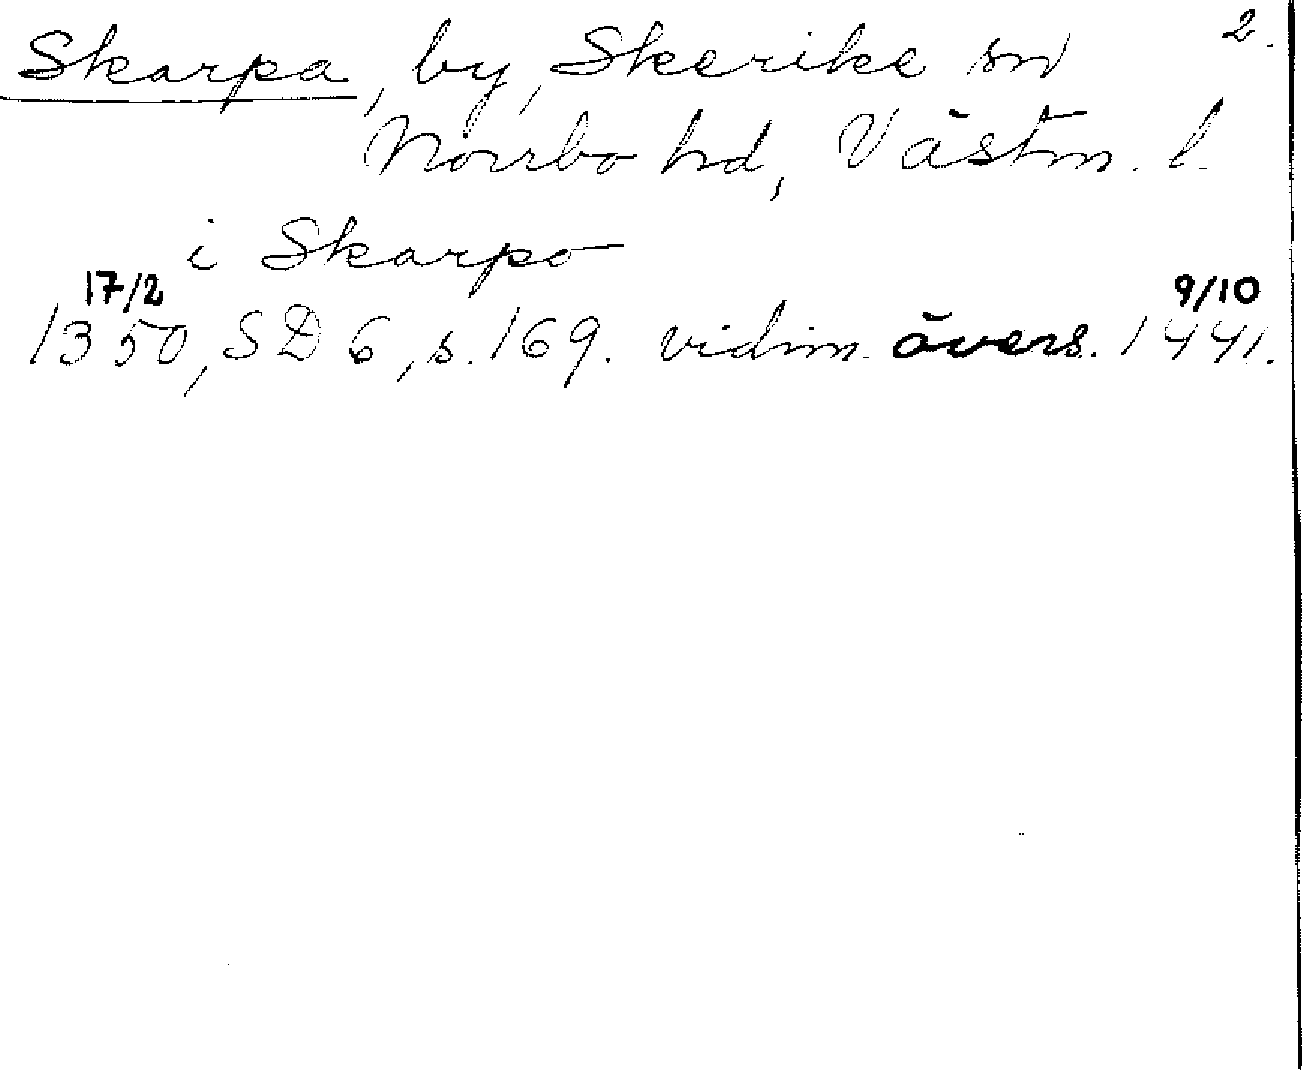 Skarpa, by, Skerike sn 2.
Norrbo hd, Västm. l.
i Skarpo
17/2 9/10
1350, SD 6, s. 169. vidim. övers. 1441.